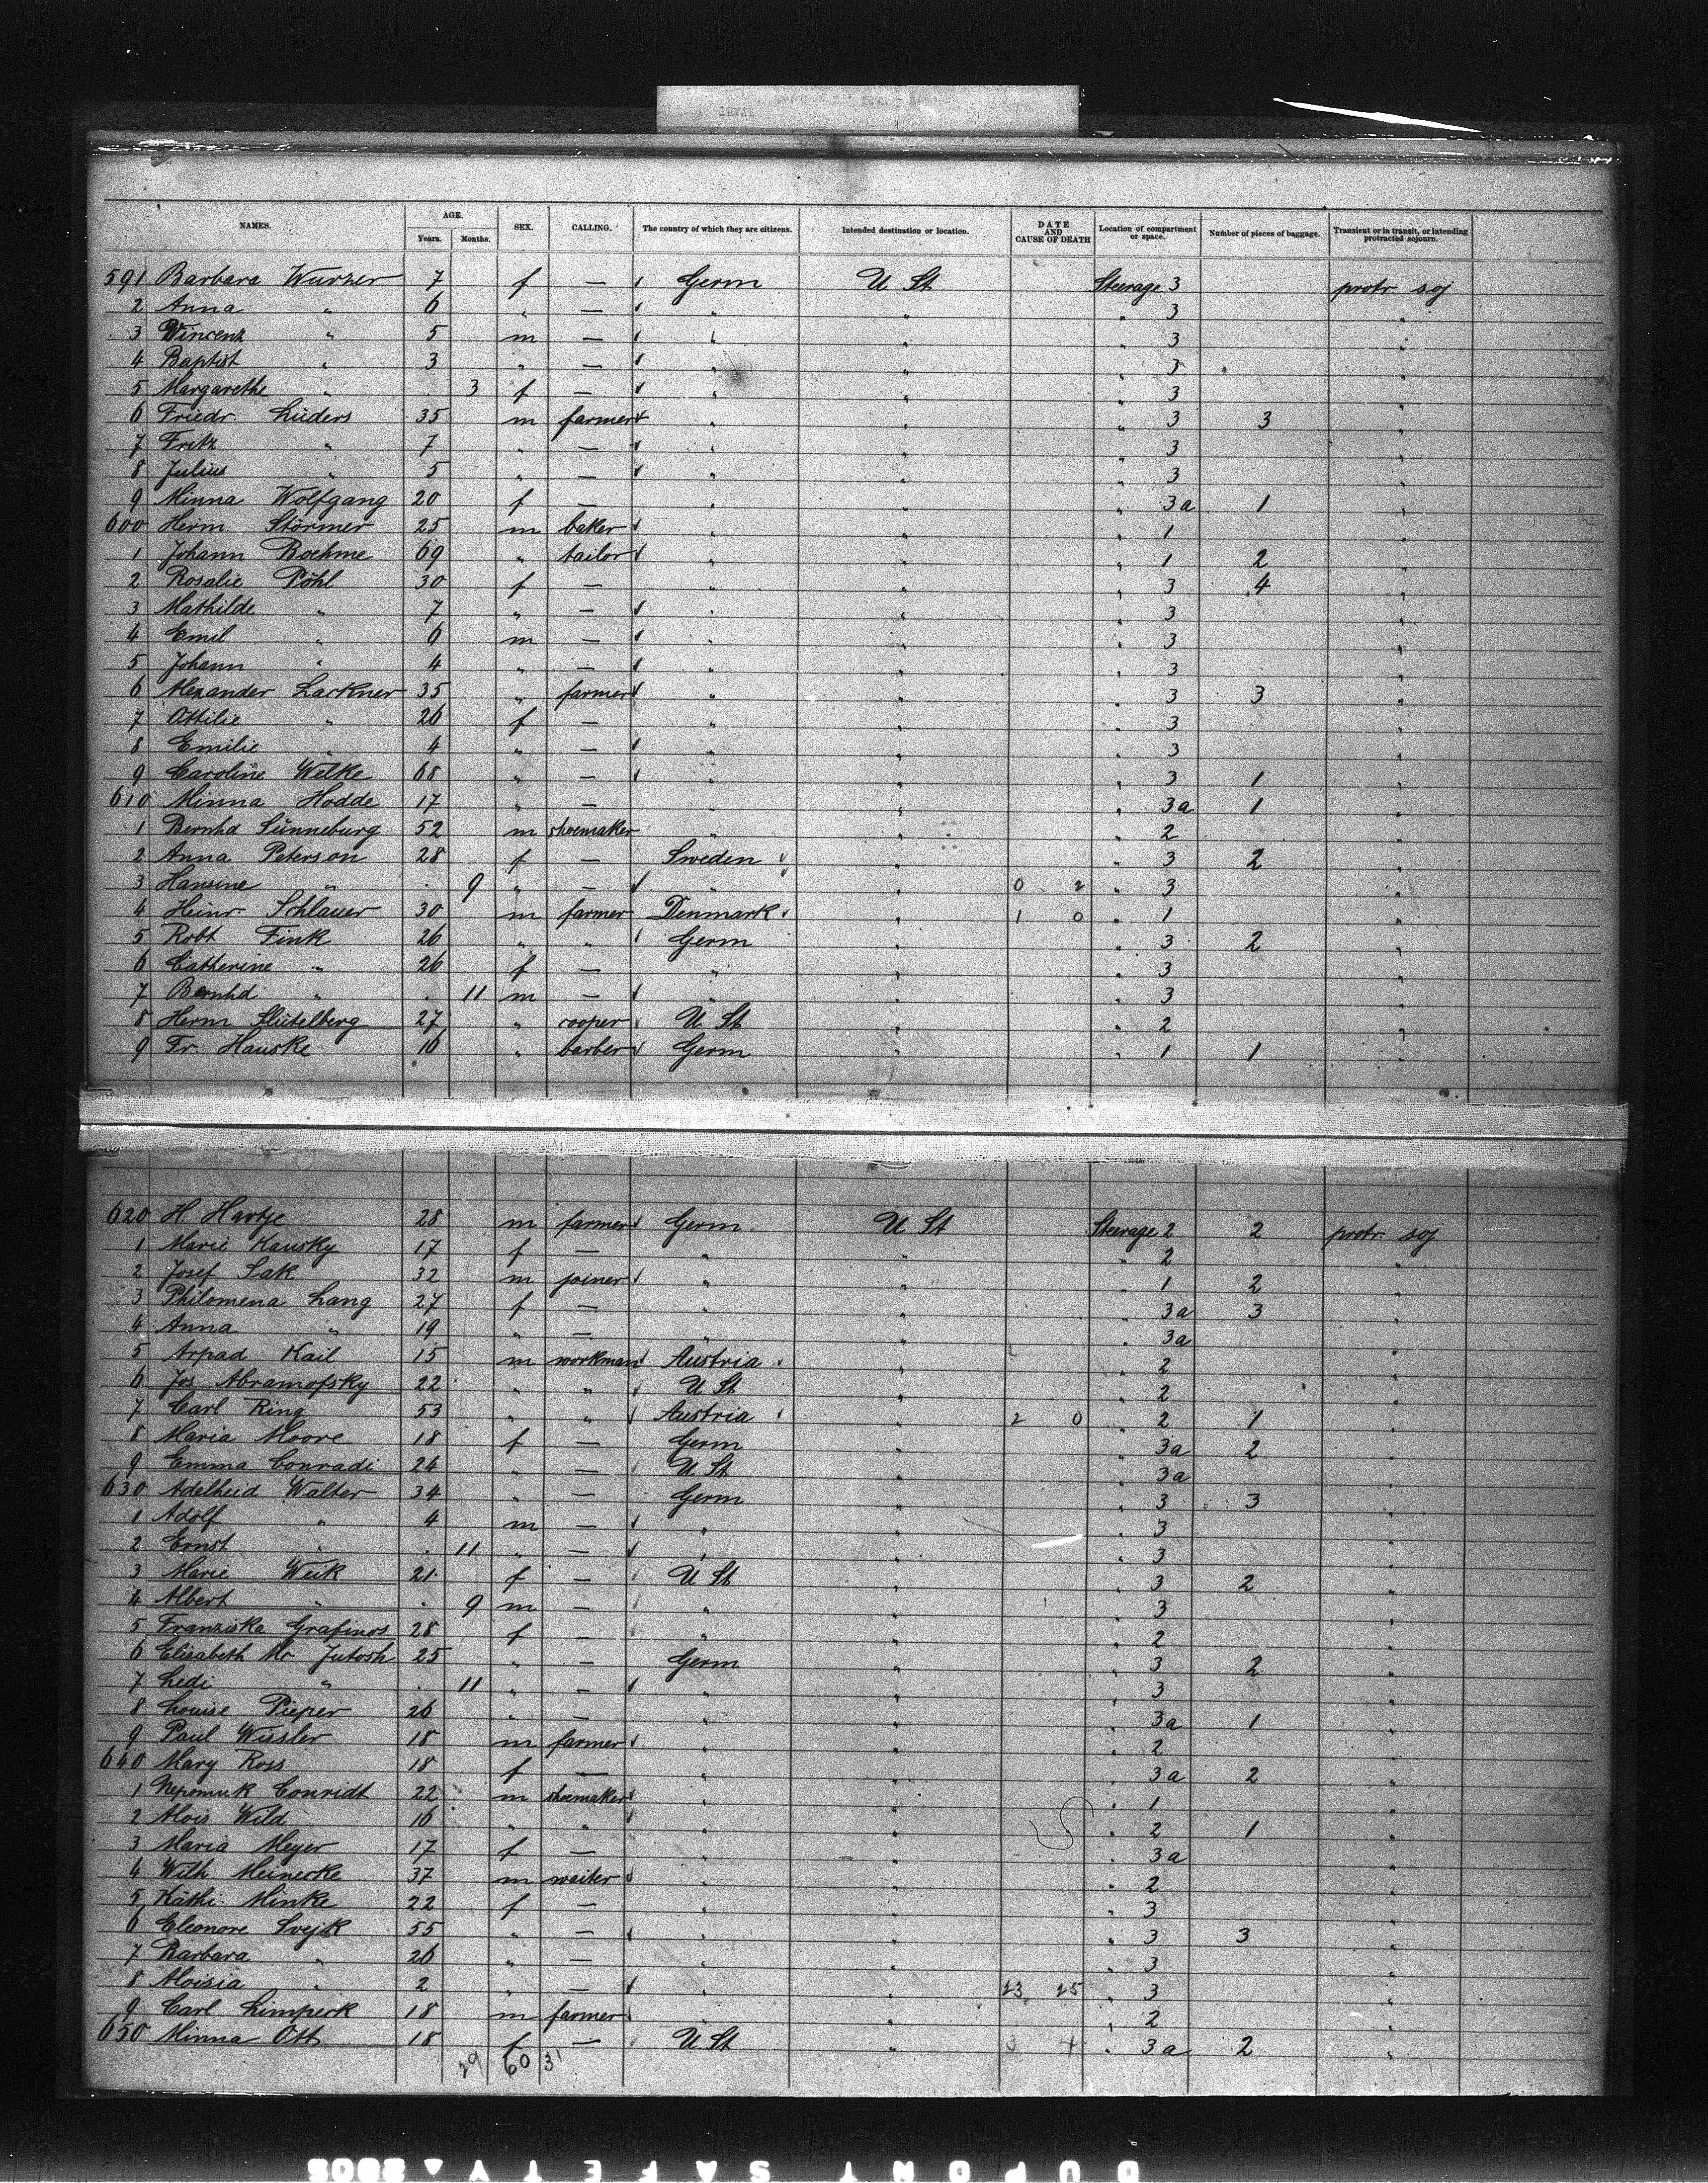 NAMES. AGE. Years. Months. SEX. CALLING. The country of which they are citizens. Intended destination or location. DATE AND CAUSE OF DEATH Location of compartment or space. Number of pieces of baggage. Transient or in transit, or intending protracted sojourn.
591 Barbara Wurzer 7 f — Germ U St Steerage 3 protr soj
2 Anna " 6 " — " " " 3 "
3 Vincenz " 5 m — " " " 3 "
4 Baptist " 3 " — " " " 3 "
5 Margarethe " 3 f — " " " 3 "
6 Friedr. Lüders 35 m farmer " " " 3 3 "
7 Fritz " 7 " — " " " 3 "
8 Julius " 5 " — " " " 3 "
9 Minna Wolfgang 20 f — " " " 3a 1 "
600 Herm Störmer 25 m baker " " " 1 "
1 Johann Boehme 69 " tailor " " " 1 2 "
2 Rosalie Pöhl 30 f — " " " 3 4 "
3 Mathilde " 7 " — " " " 3 "
4 Emil " 6 m — " " " 3 "
5 Johann " 4 " — " " " 3 "
6 Alexander Lackner 35 " farmer " " " 3 3 "
7 Ottilie " 26 f — " " " 3 "
8 Emilie " 4 " — " " " 3 "
9 Caroline Welke 68 " — " " " 3 1 "
610 Minna Hodde 17 " — " " " 3a 1 "
1 Bernhd Sünneburg 52 m shoemaker " " " 2 "
2 Anna Peterson 28 f — Sweden " " 3 2 "
3 Hansine " 9 " — " " 0 2 " 3 "
4 Heinr. Schlauer 30 m farmer Denmark " 1 0 " 1 "
5 Robt Fink 26 " " Germ " " 3 2 "
6 Catherine " 26 f — " " " 3 "
7 Bernhd " 11 m — " " " 3 "
8 Herm Slutelberg 27 " cooper U St " " 2 "
9 Fr. Hauske 16 " barber Germ " " 1 1 "
620 H. Hartje 28 m farmer Germ U St Steerage 2 2 protr. soj
1 Marie Kausky 17 f — " " " 2 "
2 Josef Sak 32 m joiner " " " 1 2 "
3 Philomena Lang 27 f — " " " 3a 3 "
4 Anna " 19 " — " " " 3a "
5 Arpad Kail 15 m workman Austria " " 2 "
6 Jos Abramofsky 22 " " U St " " 2 "
7 Carl Ring 53 " " Austria " 2 0 " 2 1 "
8 Maria Moore 18 f — Germ " " 3a 2 "
9 Emma Conradi 24 " — U St " " 3a "
630 Adelheid Walter 34 " — Germ " " 3 3 "
1 Adolf " 4 m — " " " 3 "
2 Ernst " 11 " — " " " 3 "
3 Marie Weik 21 f — U St " " 3 2 "
4 Albert " 9 m — " " " 3 "
5 Franziska Grafinos 28 f — " " " 2 "
6 Elisabeth Mc Jutosh 25 " — Germ " " 3 2 "
7 Ledi " 11 " — " " " 3 "
8 Louise Pieper 26 " — " " " 3a 1 "
9 Paul Wissler 18 m farmer " " " 2 "
640 Mary Ross 18 f — " " " 3a 2 "
1 Nepomuk Conridt 22 m shoemaker " " " 1 "
2 Alois Wild 16 " " " " " 2 1 "
3 Maria Meyer 17 f — " " " 3a "
4 Wilh Meinecke 37 m waiter " " " 2 "
5 Käthi Minke 22 f — " " " 3 "
6 Eleonore Svejk 55 " — " " " 3 3 "
7 Barbara " 26 " — " " " 3 "
8 Aloisia " 2 " — " " 23 25 " 3 "
9 Carl Limpeck 18 m farmer " " " 2 "
650 Minna Ott 18 f — U. St " 3 4 " 3a 2 "
29 60 31
DUPONT SAFETY